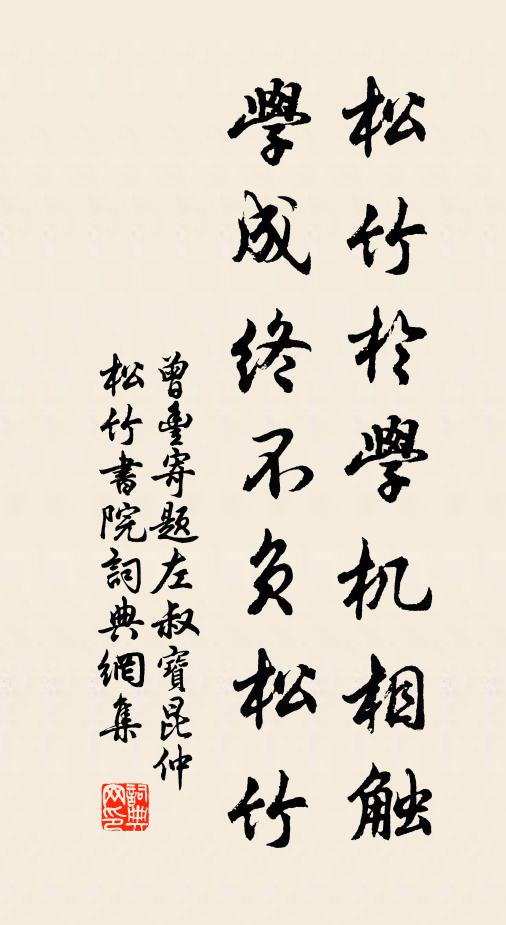 松竹於學机相触
學成终不负松竹
曾豊寄题左叔寶昆仲
松竹書院詞典網集
詞典
网印